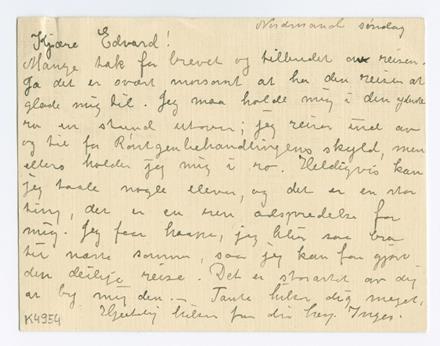 Nordstrand søndag
Kjære Edvard!
Mange tak for brevet og tilbudet om reisen.
Ja det er svært morsomt at ha den reisen at
glæde mig til. Jeg maa holde mig i den yderste
ro en stund utover; jeg reiser ind av
og til for Røntgenbehandlingens skyld, men
ellers holder jeg mig i ro. Heldigvis kan
jeg taale nogle elever, og det er en stor
ting, det er en ren adspredelse for
mig. Jeg faar haape, jeg blir saa bra
til næste sommer, saa jeg kan faa gjøre
den deilige reise. Det er storartet av dig
at by mig den. — Tante hilser dig meget,
Hjertelig hilsen fra din heng. Inga.
K4954